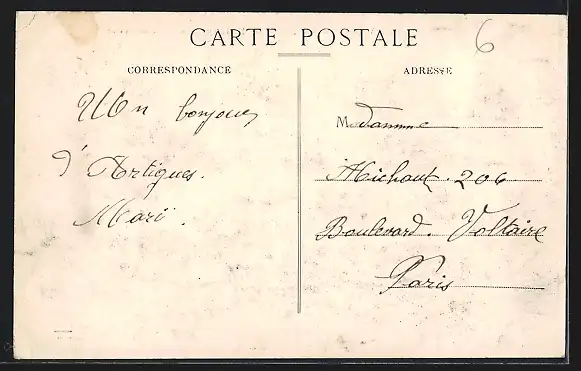 CARTE POSTALE
6
CORRESPONDANCE
ADRESSE
Un bonjour
d'Artigues.
Mari
Madamme
Michaut. 206
Boulevard. Voltaire
Paris